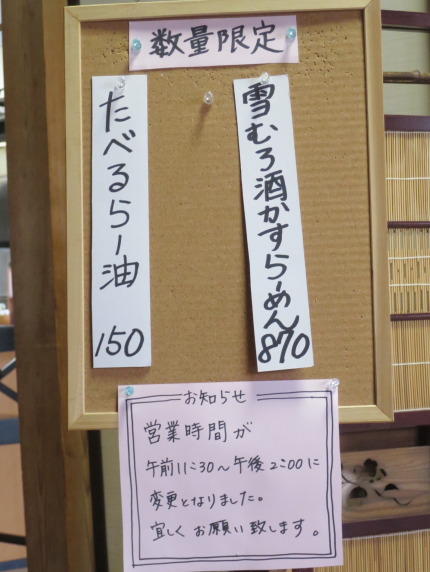 数量限定
雪むろ酒かすらーめん 870
たべるらー油 150
お知らせ
営業時間が
午前11:30～午後2:00に
変更となりました。
宜しくお願い致します。